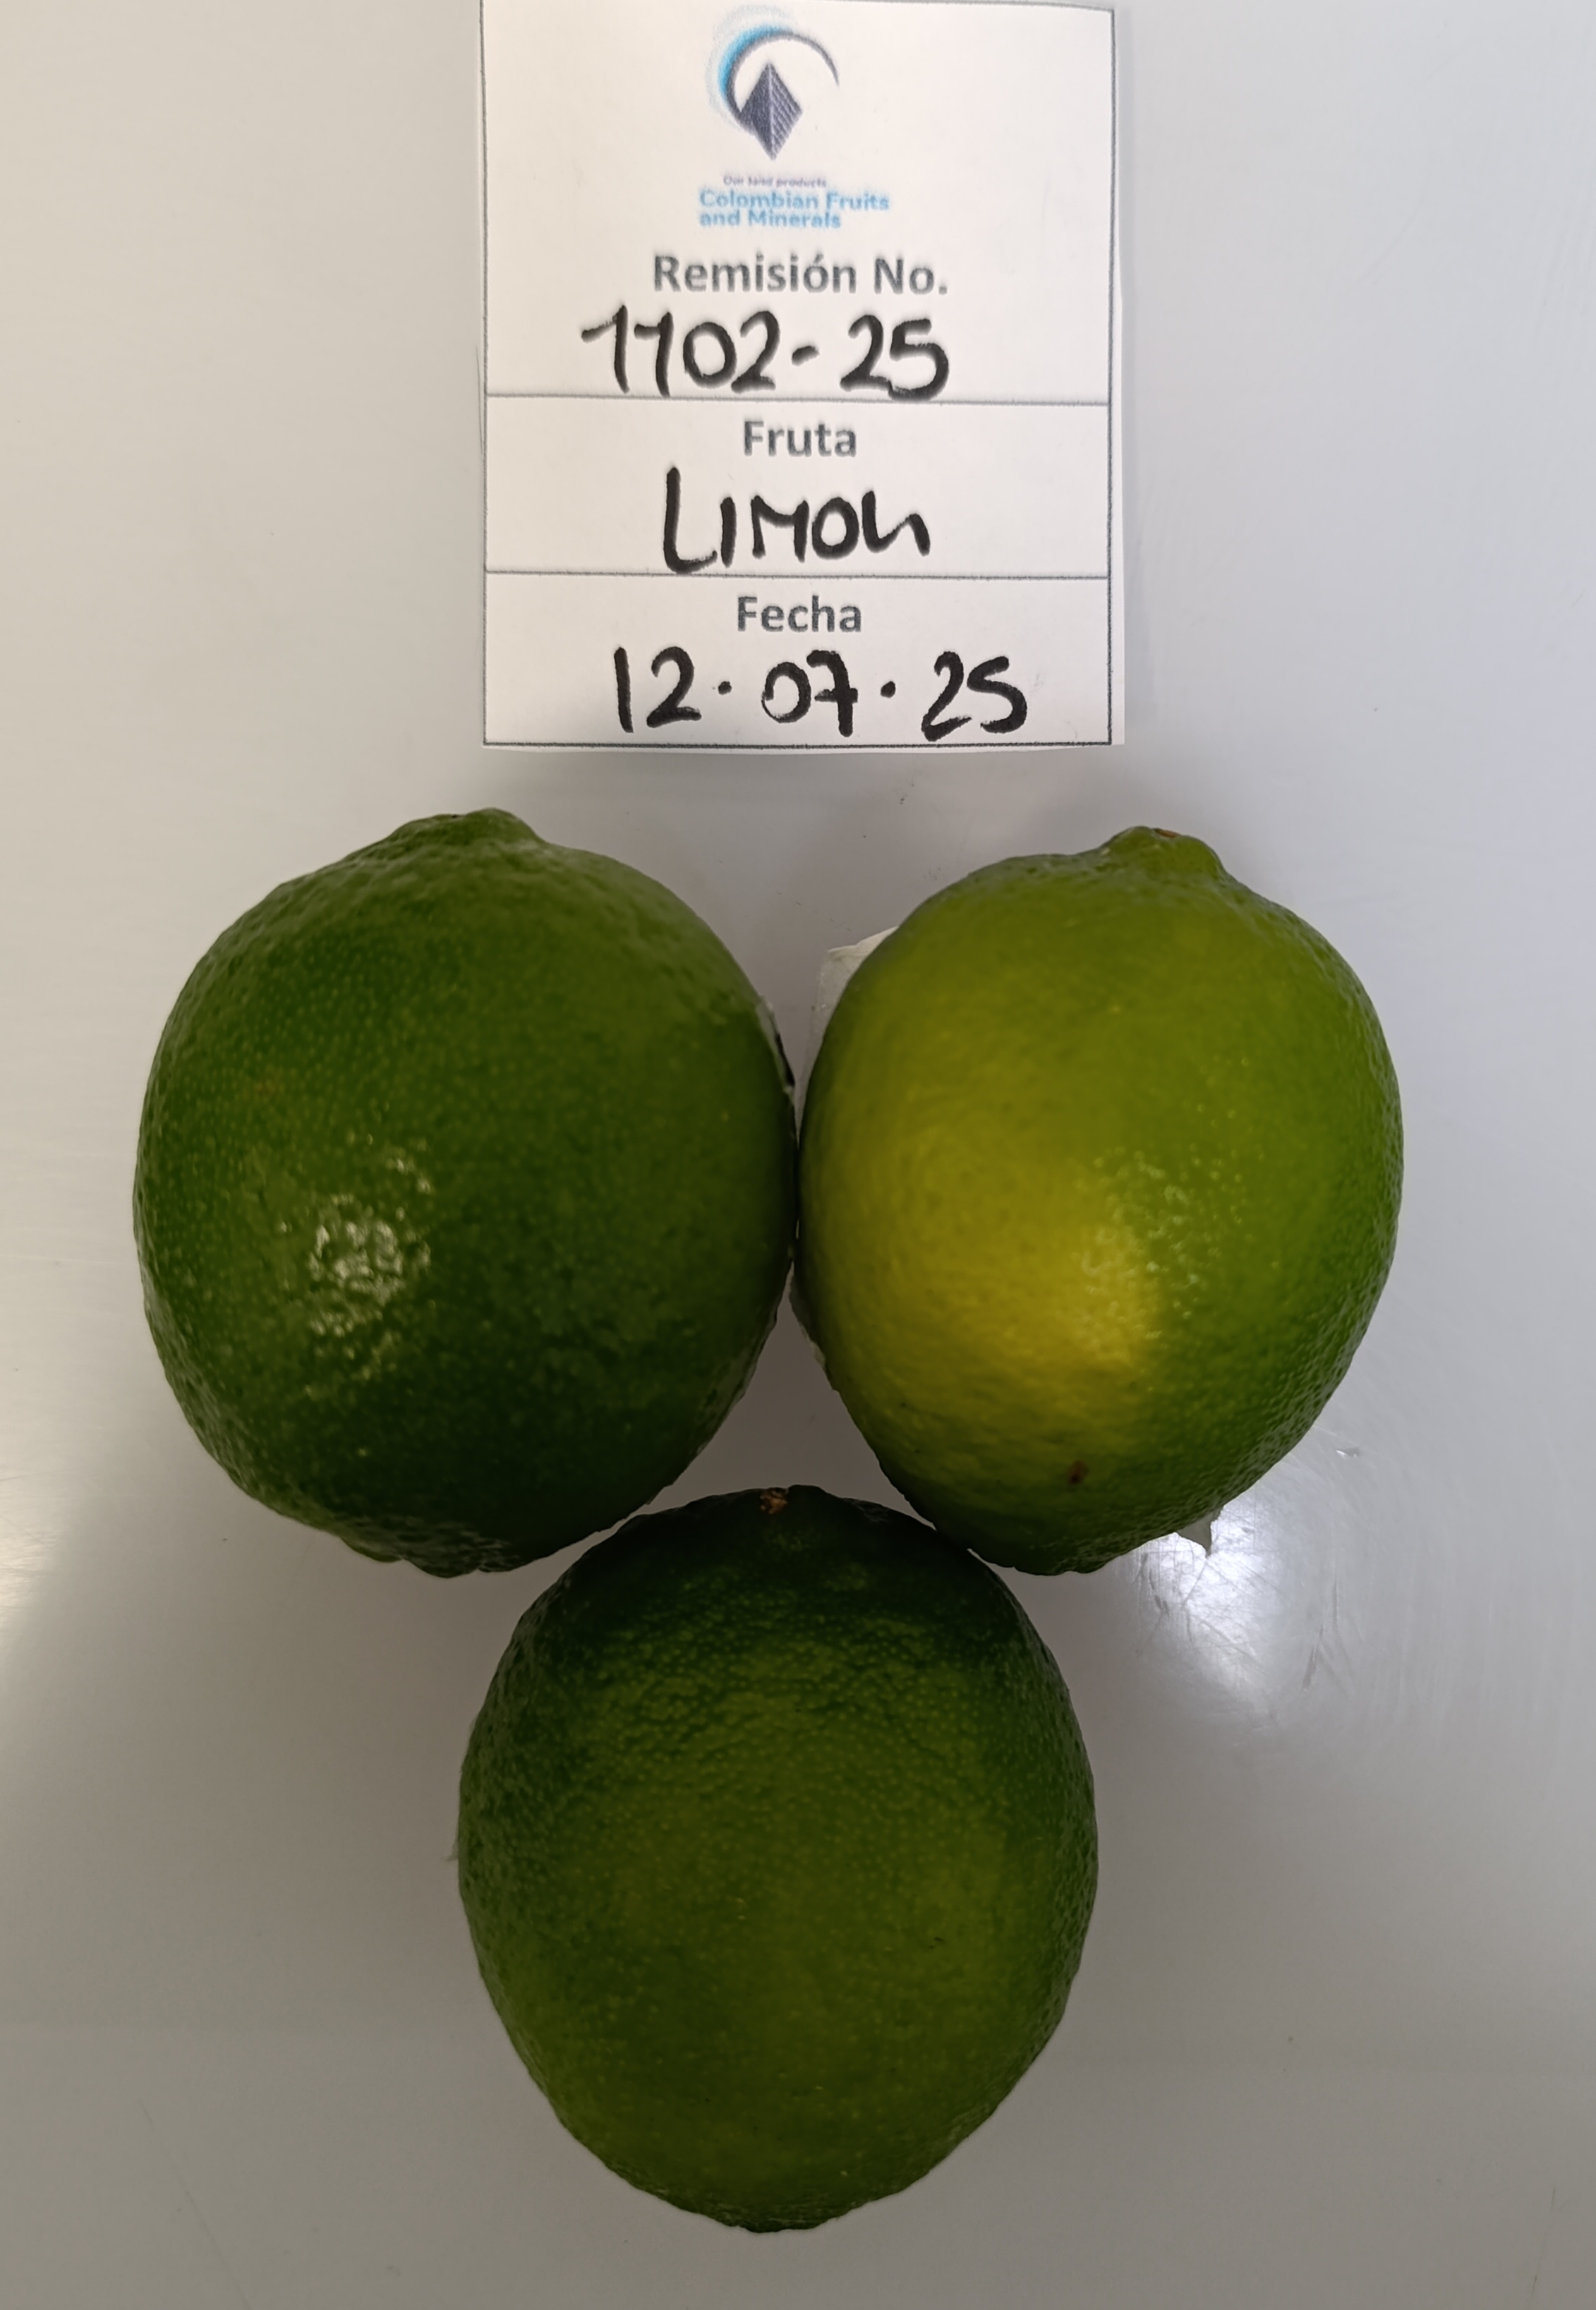 Our land products
Colombian Fruits
and Minerals
Remisión No.
1102-25
Fruta
LIMON
Fecha
12·07·25